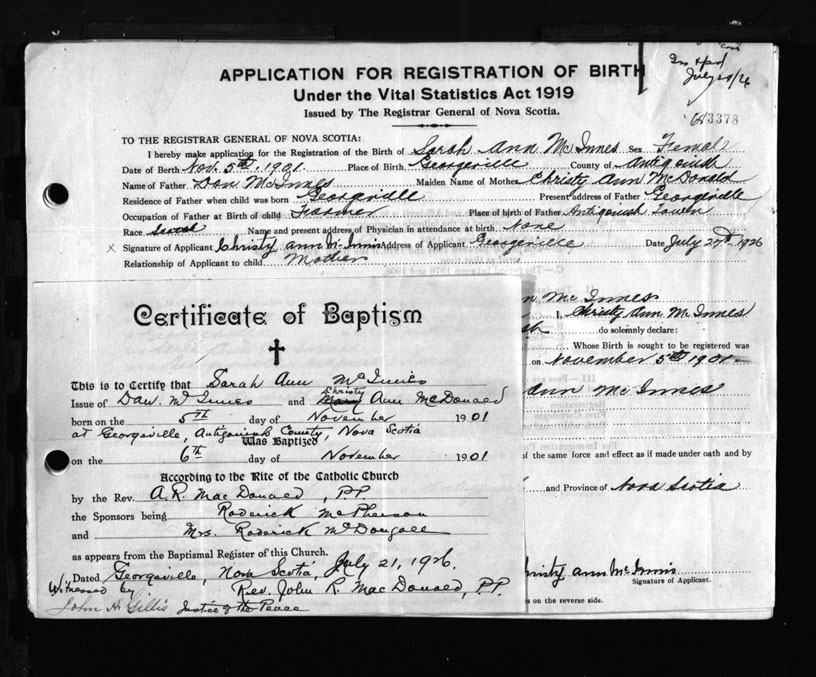 2nd Apd
July 29/26
APPLICATION FOR REGISTRATION OF BIRTH
Under the Vital Statistics Act 1919
Issued by The Registrar General of Nova Scotia.
3378
TO THE REGISTRAR GENERAL OF NOVA SCOTIA:
I hereby make application for the Registration of the Birth of Sarah Ann McInnes Sex Female
Date of Birth Nov. 5th, 1901. Place of Birth Georgeville County of Antigonish
Name of Father Dan McInnes Maiden Name of Mother Christy Ann McDonald
Residence of Father when child was born Georgeville Present address of Father Georgeville
Occupation of Father at Birth of child Farmer Place of birth of Father Antigonish Town
Race Scotch Name and present address of Physician in attendance at birth None
x Signature of Applicant Christy ann McInnis Address of Applicant Georgeville Date July 27th 1926
Relationship of Applicant to child Mother
n McInnes
I, Christy Ann McInnes
sh do solemnly declare:
Whose Birth is sought to be registered was
on November 5th 1901
Ann McInnes
of the same force and effect as if made under oath and by
and Province of Nova Scotia
hristy ann McInnis
Signature of Applicant.
s on the reverse side.
Certificate of Baptism
This is to Certify that Sarah Ann McInnes
Issue of Dan. McInnes and Christy Ann McDonald
born on the 5th day of November 1901
at Georgeville, Antigonish County, Nova Scotia
Was Baptized
on the 6th day of November 1901
According to the Rite of the Catholic Church
by the Rev. A. R. MacDonald, P.P.
the Sponsors being Roderick McPherson
and Mrs. Roderick McDougall
as appears from the Baptismal Register of this Church.
Dated Georgeville, Nova Scotia, July 21, 1926.
Witnessed by Rev. John R. MacDonald, P.P.
John A Gillis Justice of the Peace